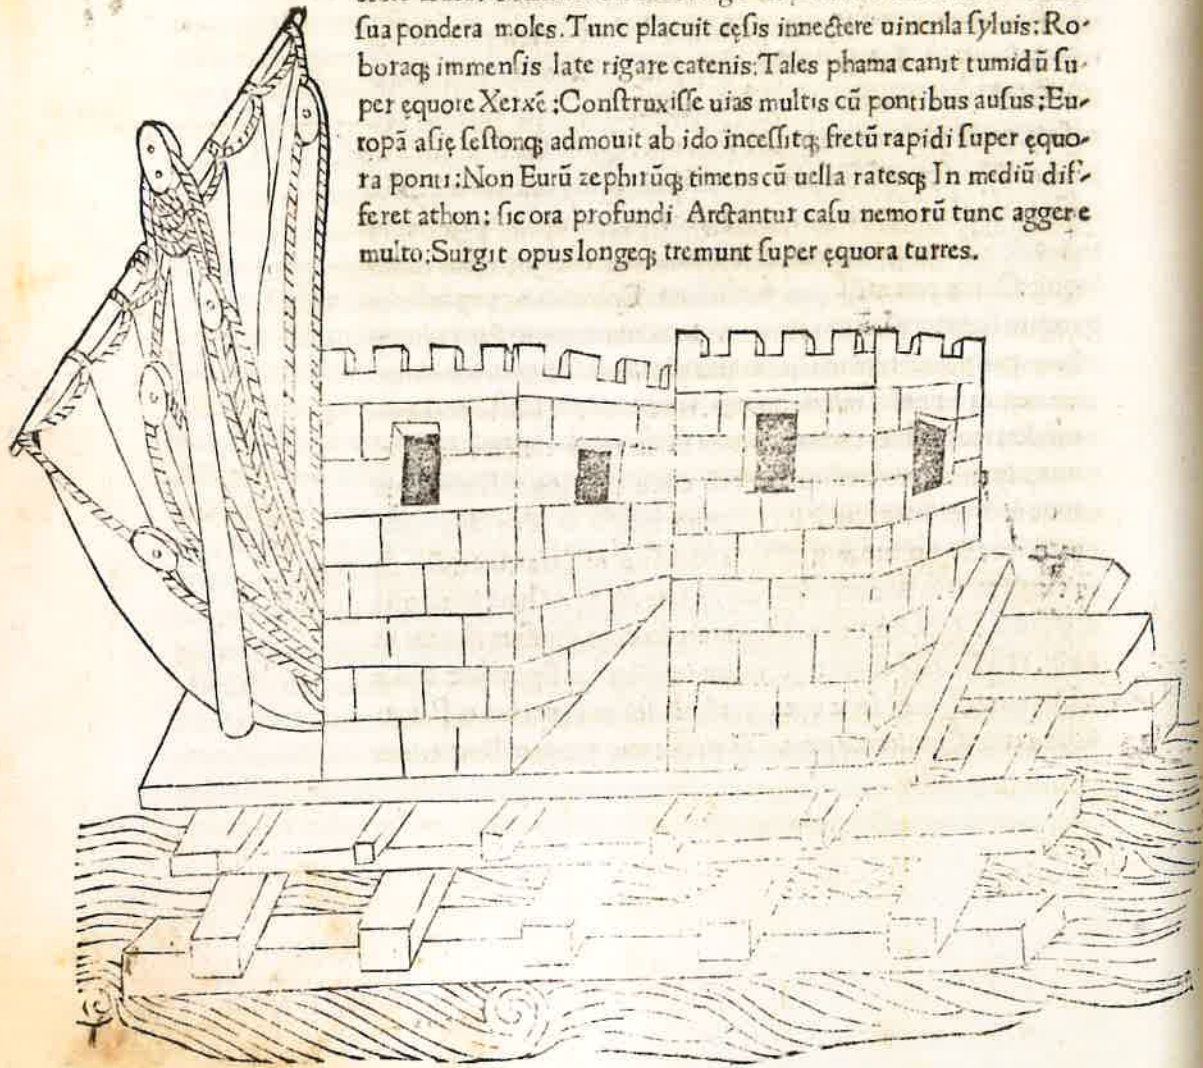 sua pondera moles. Tunc placuit cęsis innectere uincnla syluis: Ro-
boraq; immensis late rigare catenis: Tales phama canit tumidũ su-
per ęquore Xerxẽ: Construxisse uias multis cũ pontibus ausus: Eu-
ropã asię sestonq; admouit ab ido incessitq; fretũ rapidi super ęquo-
ra ponti: Non Eurũ zephirũq; timens cũ uella ratesq; In mediũ dif-
feret athon: sic ora profundi Arctantur casu nemorũ tunc aggere
multo: Surgit opus longeq; tremunt super ęquora turres.